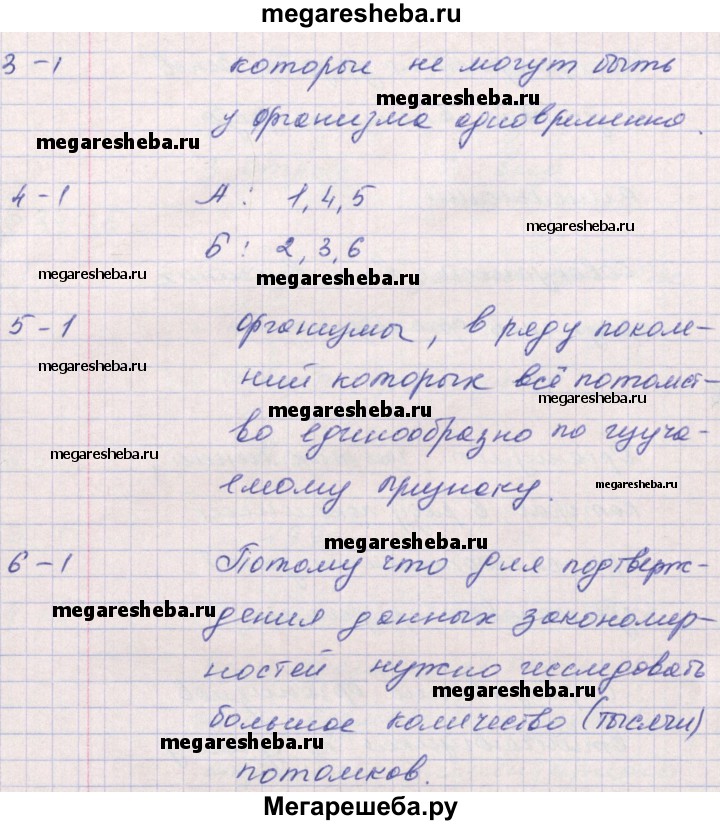 megaresheba.ru
3 - 1 которые не могут быть
megaresheba.ru
у организма одновременно.
megaresheba.ru
4 - 1 А: 1, 4, 5
megaresheba.ru
Б: 2, 3, 6
megaresheba.ru
megaresheba.ru
5 - 1 организмы, в ряду поколе-
megaresheba.ru
ний которых всё потомст-
megaresheba.ru
megaresheba.ru
во единообразно по изуча-
megaresheba.ru
емому признаку.
megaresheba.ru
megaresheba.ru
6 - 1 Потому что для подтверж-
megaresheba.ru
дения данных закономер-
ностей нужно исследовать
megaresheba.ru
большое количество (тысячи)
megaresheba.ru
потомков.
Мегарешеба.ру